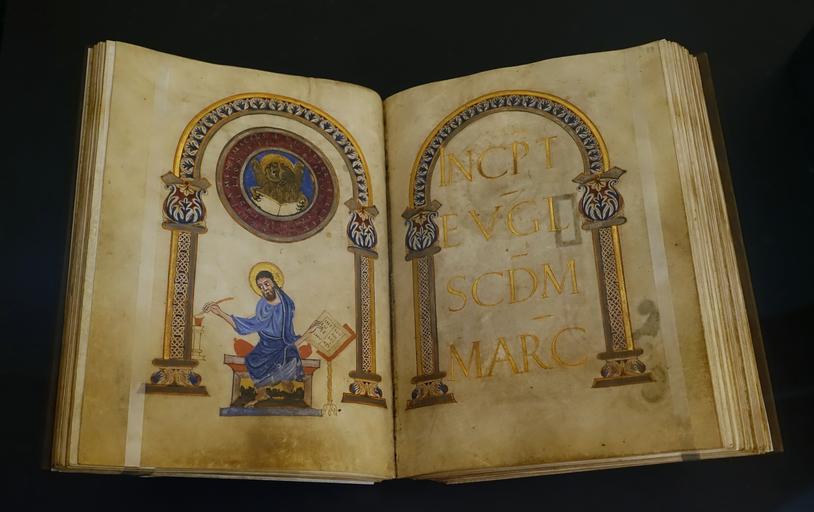 INCP̄T
EVḠL
SCD̄M
MARC̄